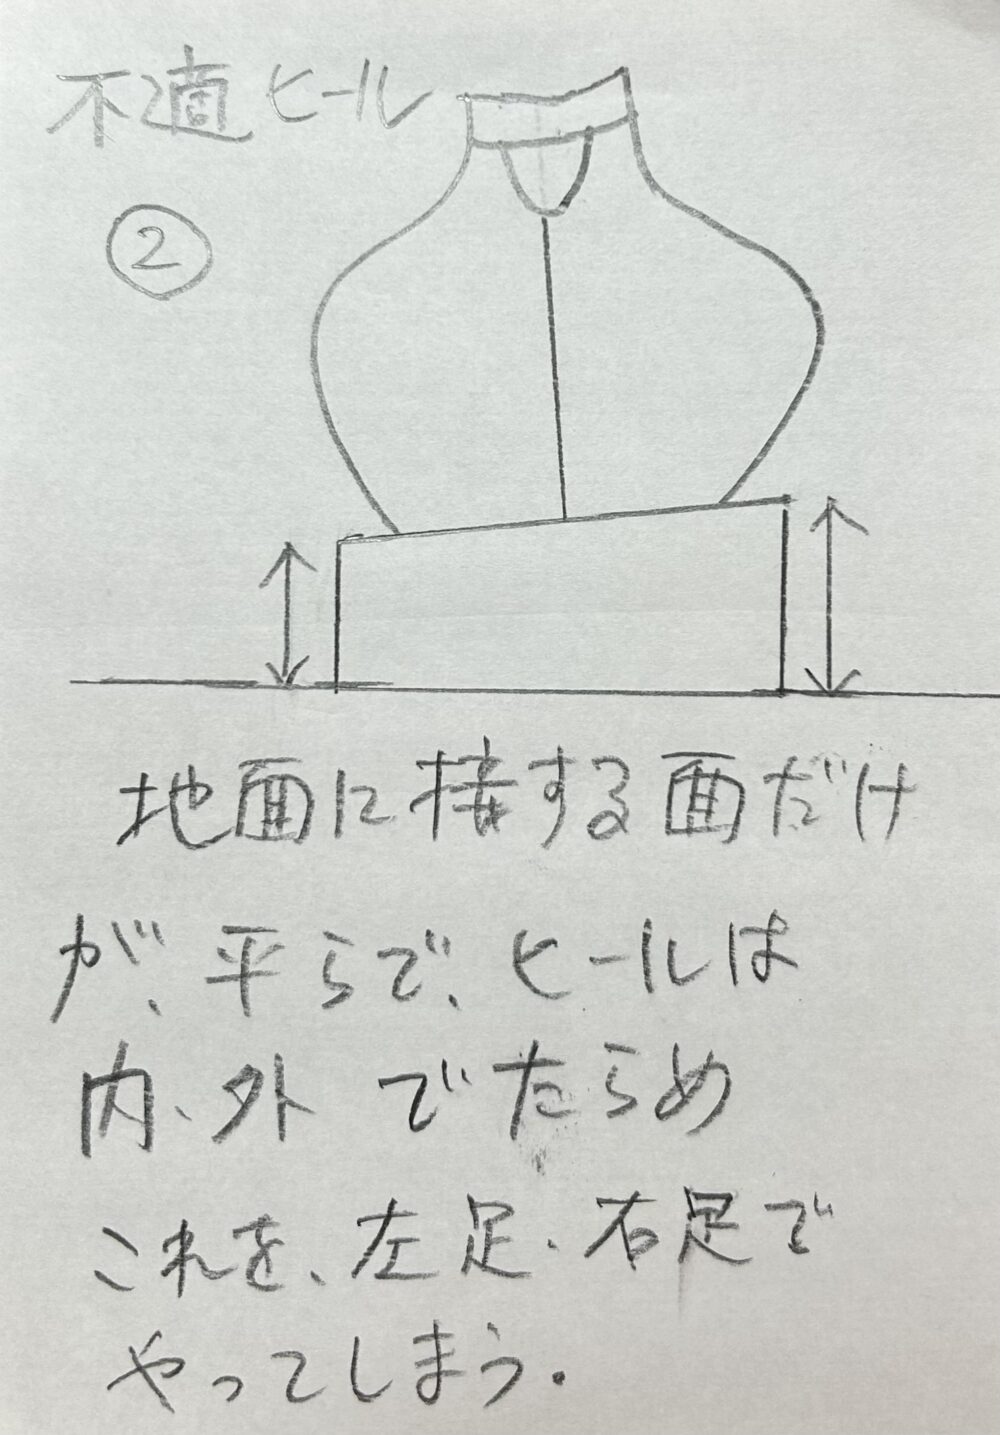 不適ヒール
②
地面に接する面だけ
が、平らで、ヒールは
内、外 でたらめ
これを、左足、右足で
やってしまう。